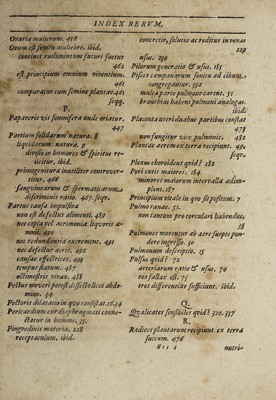 INDEX RERVM.
Ovaria mulierum. 456
Ovum est semen muliebre. ibid.
continet rudimentum futuri foetus
462
est principium omnium viventium.
461
comparatur cum semine plantae. 461
seqq.
P.
Papaveris vis somnifera unde oriatur.
447
Partium solidarum natura. 8
liquidarum natura. 9
divisio in humores & spiritus re-
iicitur, ibid.
primogenitura inutiliter controver-
titur. 466
sanguinearum & spermaticarum
discriminis ratio. 467. seqr.
Partus causa impulsiva
non est defectus alimenti. 489
nec copia vel acrimonia liquoris a-
mnii. 490
nec redundantia excrementi. 491
nec defectus aeris. 492
causae effectrices. 493
tempus statum. 487
octimestris vivax. 488
Pectus moveri potest dissectio licet abdo-
mine. 34
Pectoris dilatatio in quo consistat. 16.34
Pericardium cur diaphragmati conne-
ctatur in homine. 35.
Pinguedinis materia. 228
receptaculum. ibid.
concretio, solutio ac reditur in venas
229
usus. 230
Pilorum generatio & usus. 185
Pisces campanarum sonitu ad cibum
congregantur. 392
multi aure pulmone carent. 51
branchias habent pulmoni analogas.
ibid:
Placenta uteri duabus partibus constat
473
non fungitur vice pulmonis. 482
Plantae aerem ex terra recipiunt. 49.
seqr.
Plexus choroideus quid? 282
Pori cutis maiores. 184
minores maiorum intervalla adim-
plent. 187
Principium vitale in quo sit positum. 7
Pulmo ranae. 51.
non tantum pro torculari habendus.
38
Pulmones moventur ab aere suopte pon-
dere ingresso. 30
Pulmonum descriptio. 15
Pulsus quid? 72
arteriarum ratio & usus. 70
cor fallax est. 75
tres differentiae sufficiunt. ibid:
Q.
Qualitates sensibiles quid? 320. 337
R.
Radices plantarum recipiunt ex terra
succum. 476
Sss 4
nutri-